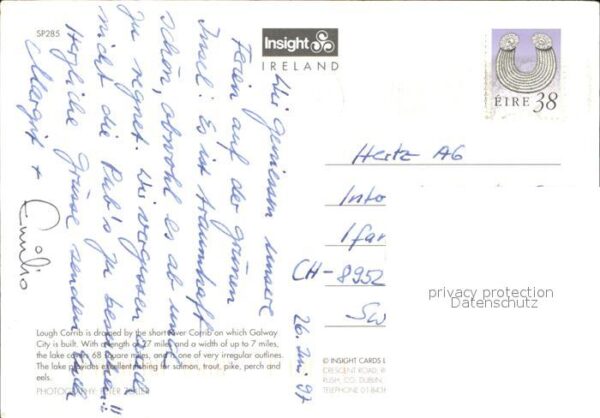 SP285
Insight
IRELAND
ÉIRE 38
Wir geniessen unsere
Ferien auf der grünen
Insel! Es ist traumhaft
schön, obwohl es ab und
zu regnet. Wir vergessen auch
nicht die Pub's zu besuchen!!
Herzliche Grüsse senden Euch
Margrit +
Emilio
26. Juni 97
Hertz AG
Info
Ifan
CH-8952
Sw
privacy protection
Datenschutz
Lough Corrib is drained by the short river Corrib on which Galway
City is built. With a length of 27 miles and a width of up to 7 miles,
the lake covers 68 square miles, and is one of very irregular outlines.
The lake provides excellent fishing for salmon, trout, pike, perch and
eels.
PHOTOGRAPHY: PETER ZÖLLER
© INSIGHT CARDS L
CRESCENT ROAD, R
RUSH, CO. DUBLIN.
TEL 01-843